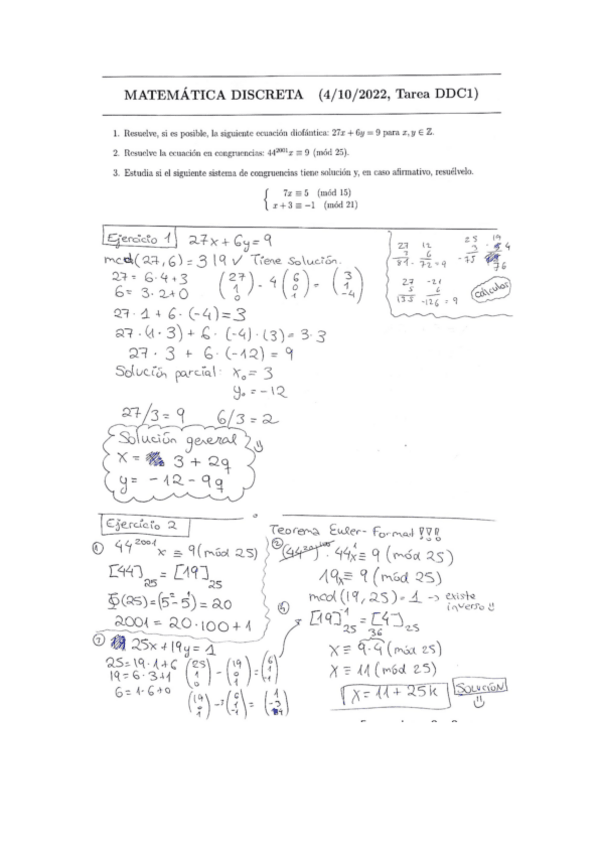 MATEMÁTICA DISCRETA (4/10/2022, Tarea DDC1)
1. Resuelve, si es posible, la siguiente ecuación diofántica: 27x + 6y = 9 para x, y ∈ Z.
2. Resuelve la ecuación en congruencias: 44²⁰⁰¹x ≡ 9 (mód 25).
3. Estudia si el siguiente sistema de congruencias tiene solución y, en caso afirmativo, resuélvelo.
{ 7x ≡ 5 (mód 15)
x + 3 ≡ −1 (mód 21)
Ejercicio 1 27x + 6y = 9
mcd(27, 6) = 3 | 9 ✓ Tiene solución.
27 = 6·4+3
6 = 3·2+0
(27 1 0) - 4 (6 0 1) = (3 1 -4)
27·1 + 6·(-4) = 3
27·(1·3) + 6·(-4)·(3) = 3·3
27·3 + 6·(-12) = 9
Solución parcial: x₀ = 3
y₀ = -12
27/3 = 9 6/3 = 2
Solución general
x = 3 + 2q
y = -12 - 9q
27 12
3 6
81 - 72 = 9
27 -21
5 6
135 -126 = 9
25 19
3 4
-75 76
cálculos
Ejercicio 2
① 44²⁰⁰¹ x ≡ 9 (mód 25)
[44]₂₅ = [19]₂₅
Φ(25) = (5² - 5¹) = 20
2001 = 20·100 + 1
25x + 19y = 1
25 = 19·1+6
19 = 6·3+1
6 = 1·6+0
(25 1 0) - (19 0 1) = (6 1 -1)
(19 0 1) -3 (6 1 -1) = (1 -3 4)
Teorema Euler-Format !!!
② · 44¹x ≡ 9 (mód 25)
19x ≡ 9 (mód 25)
mcd(19, 25) = 1 → existe
inverso
④ [19]⁻¹₂₅ = [4]₂₅
36
x ≡ 9·4 (mód 25)
x ≡ 11 (mód 25)
x = 11 + 25k SOLUCIÓN